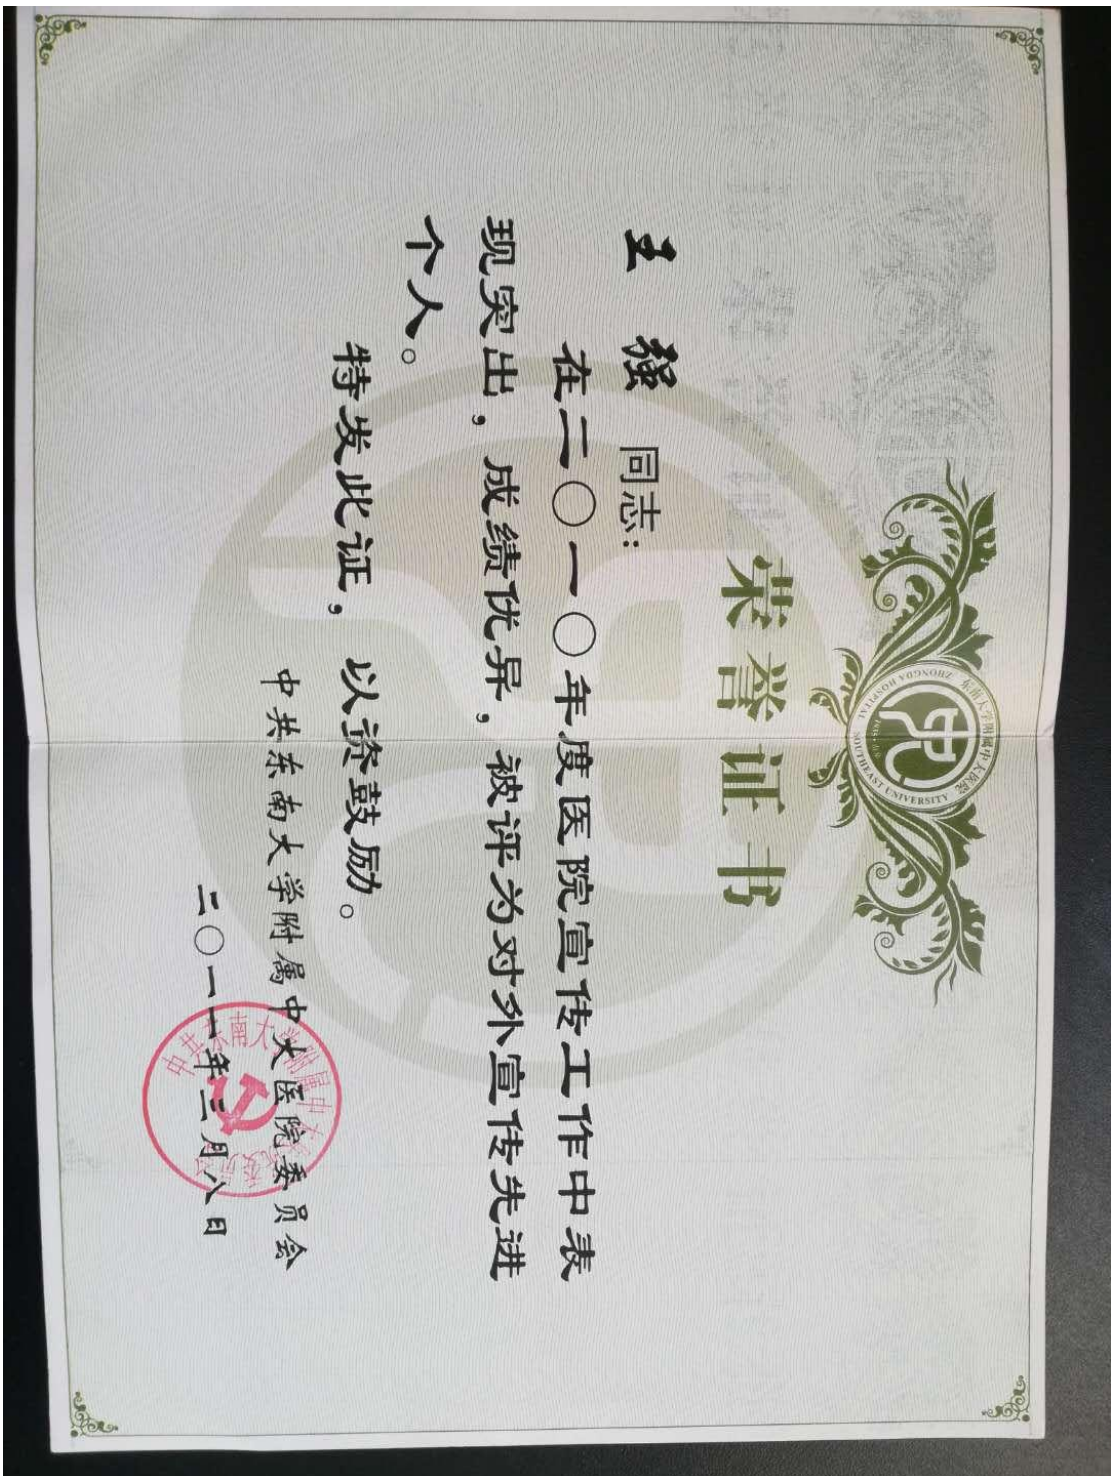 东南大学附属中大医院
ZHONGDA HOSPITAL SOUTHEAST UNIVERSITY
荣誉证书
王强 同志:
在二〇一〇年度医院宣传工作中表
现突出，成绩优异，被评为对外宣传先进
个人。
特发此证，以资鼓励。
中共东南大学附属中大医院委员会
二〇一一年三月八日